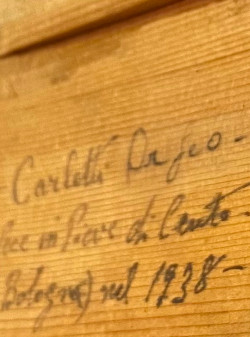 Carletti Orfeo -
fece in Pieve di Cento
Bologna) nel 1938 -